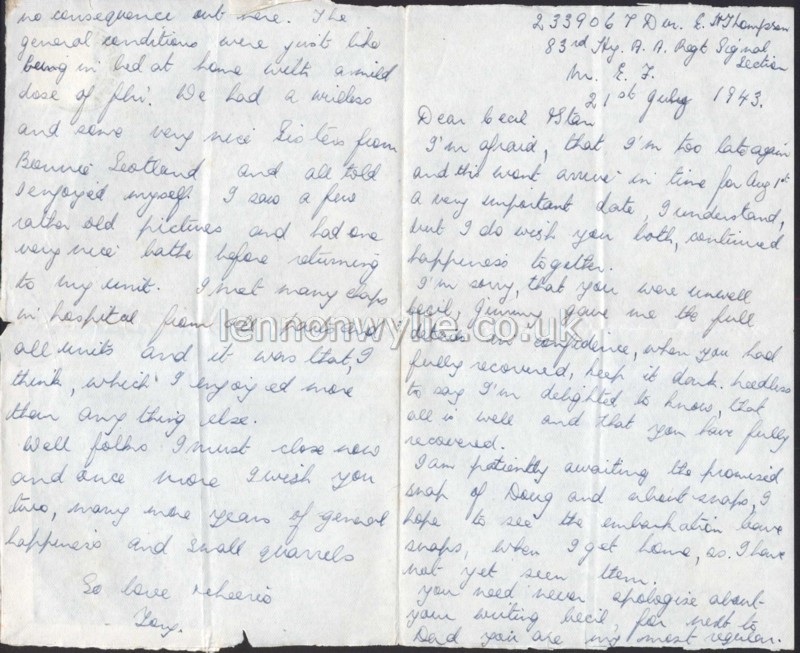 2339067 Dvr. E. H Thompson
83rd Hy. A. A. Regt Signal
Section
M. E. F.
21st July 1943.
Dear Cecil & Stan
I'm afraid, that I'm too late again
and this wont arrive in time for Aug 1st
a very important date, I understand,
but I do wish you both, continued
happiness together.
I'm sorry, that you were unwell
Cecil, Jimmy gave me the full
details in confidence, when you had
fully recovered, keep it dark. Needless
to say I'm delighted to know, that
all is well and that you have fully
recovered.
I am patiently awaiting the promised
snap of Doug and about snaps, I
hope to see the embarkation leave
snaps, when I get home, as I have
not yet seen them.
You need never apologise about
your writing Cecil, for next to
Dad you are my most regular.
no consequence out here. The
general conditions were just like
being in bed at home with a mild
dose of flu'. We had a wireless
and some very nice Sisters from
Bonnie Scotland and all told
I enjoyed myself. I saw a few
rather old pictures and had one
very nice bathe before returning
to my unit. I met many chaps
in hospital from all
all units and it was that, I
think, which I enjoyed more
than any thing else.
Well folks I must close now
and once more I wish you
two, many more years of general
happiness and small quarrels
So love & cheerio
Tony.
lennonwylie.co.uk